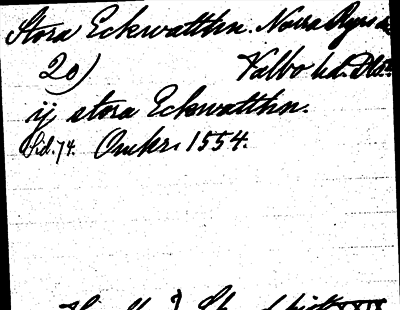 Stora Eckwatthn. Norra Ryrs
20) Valbo hd. Dls.
ij stora Eckwatthn.
Sid. 74. Omkr. 1554.